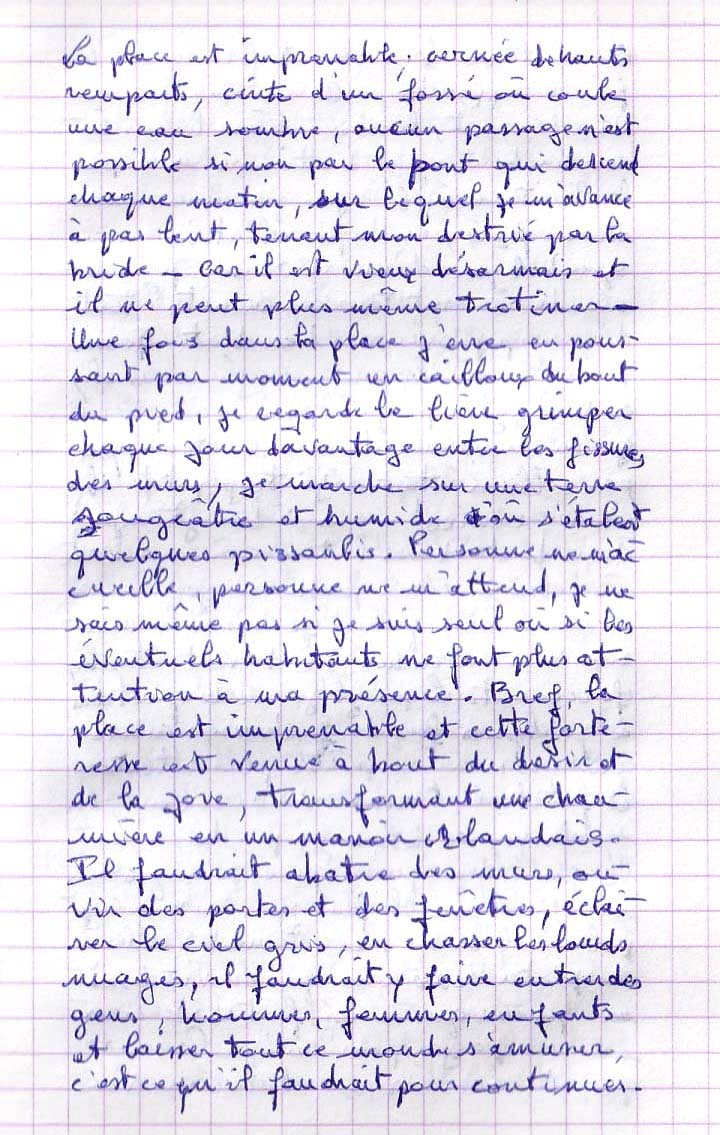 La place est imprenable; cernée de hauts
remparts, ceinte d'un fossé où coule
une eau sombre, aucun passage n'est
possible sinon par le pont qui descend
chaque matin, sur lequel je m'avance
à pas lent, tenant mon destrié par la
bride – car il est vieux désormais et
il ne peut plus même trotiner –
Une fois dans la place j'erre en pous-
sant par moment un cailloux du bout
du pied, je regarde le lière grimper
chaque jour davantage entre les fissures
des murs, je marche sur une terre
rougeâtre et humide où s'étalent
quelques pissanlis. Personne ne m'ac-
cueille, personne ne m'attend, je ne
sais même pas si je suis seul où si les
éventuels habitants ne font plus at-
tention à ma présence. Bref, la
place est imprenable et cette forte-
resse est venue à bout du désir et
de la joie, transformant une chau-
mière en un manoir irlandais.
Il faudrait abatre des murs, ou-
vrir des portes et des fenêtres, éclai-
rer le ciel gris, en chasser les lourds
nuages, il faudrait y faire entrer des
gens, hommes, femmes, enfants
et laisser tout ce monde s'amuser,
c'est ce qu'il faudrait pour continuer.